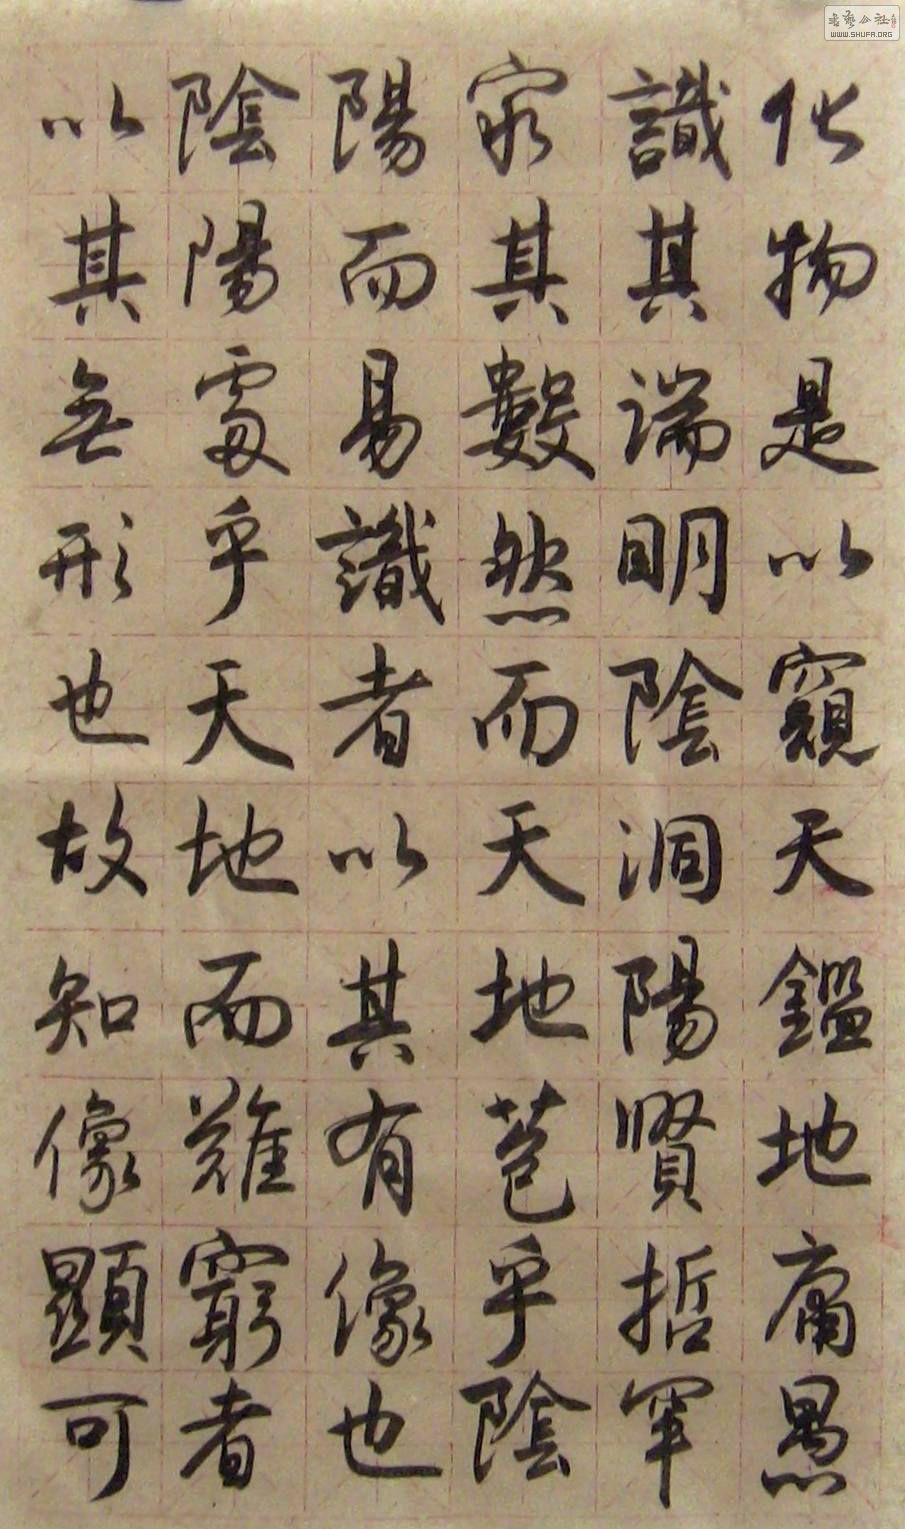 化物是以窺天鑑地庸愚
識其端明陰洞陽賢哲罕
窮其數然而天地苞乎陰
陽而易識者以其有像也
陰陽處乎天地而難窮者
以其無形也故知像顯可
書藝公社
WWW.SHUFA.ORG